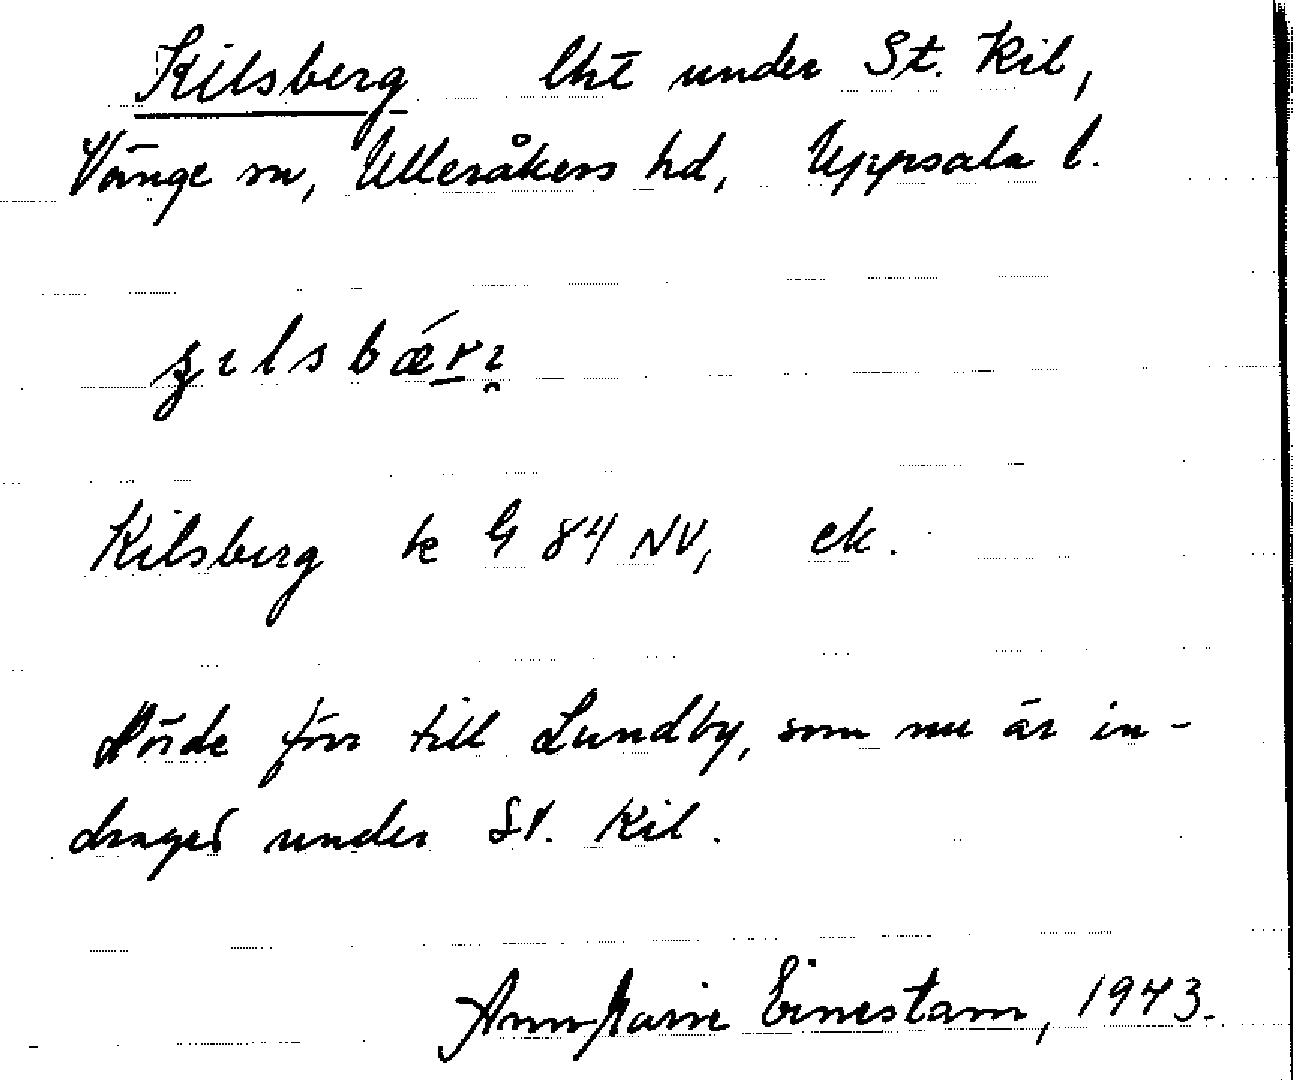 Kilsberg lht under St. Kil,
Vänge sn, Ulleråkers hd, Uppsala l.
ʒɩlsbǽrɩ̯
Kilsberg te G 84 NV, ek.
Hörde förr till Lundby, som nu är in-
draget under St. Kil.
Ann Marie Einestam, 1943.